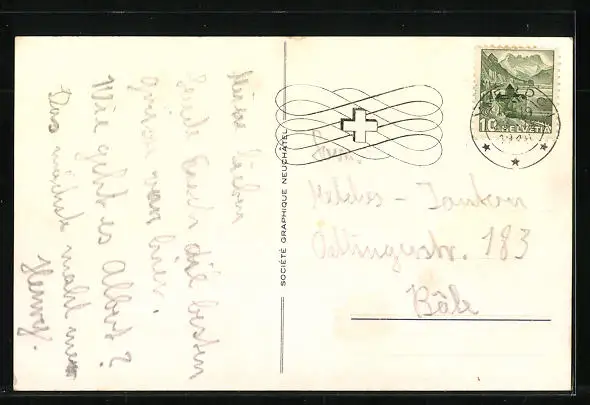 Meine Lieben
Sende Euch die besten
Grüsse von hier.
Wie geht es Albert?
Das nächste mahl mehr
Henry.
SOCIÉTÉ GRAPHIQUE NEUCHÂTEL
10 HELVETIA
Fam.
Oltingerstr. 183
Bâle